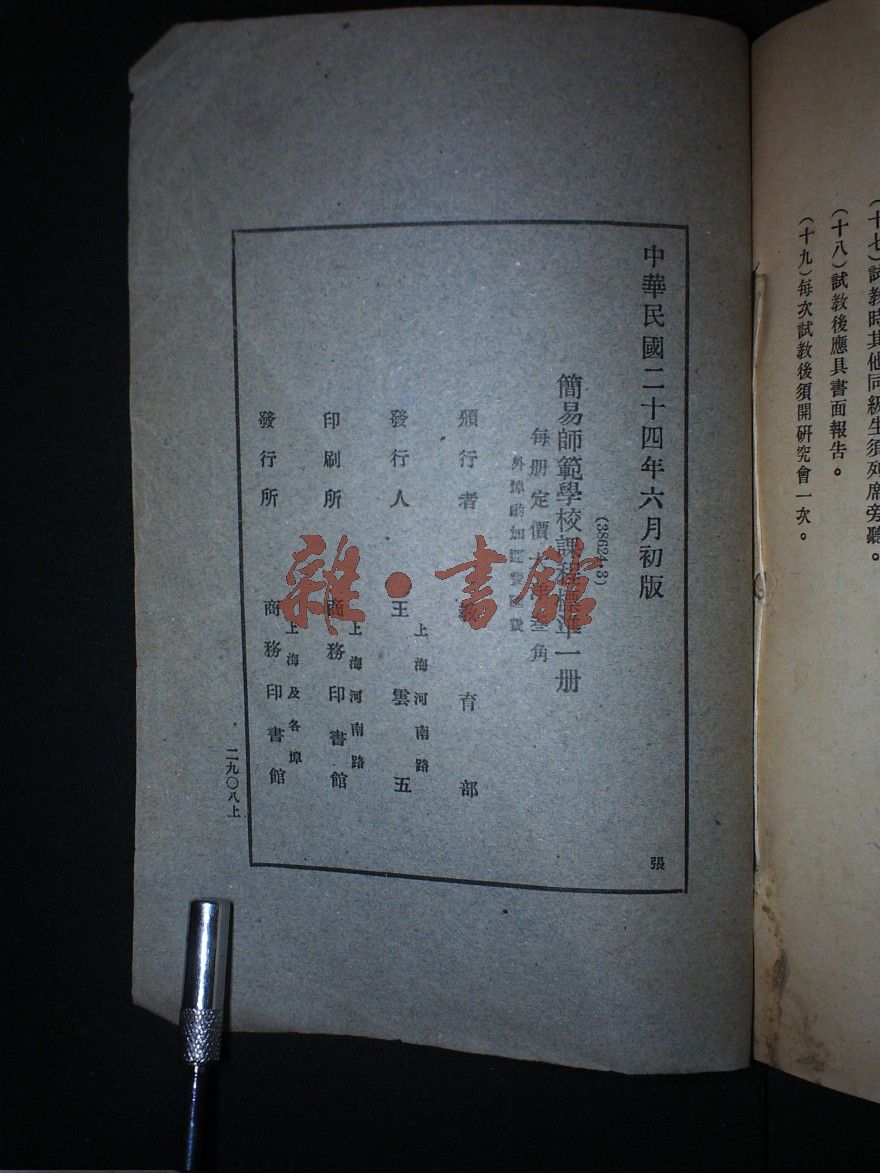 (十七)試教時其他同級生須列席旁聽。
(十八)試教後應具書面報告。
(十九)每次試教後須開研究會一次。
中華民國二十四年六月初版
(38624·3)
簡易師範學校課程標準一册
每册定價大洋叁角
外埠酌加運費匯費
頒行者 教育部
上海河南路
發行人 王雲五
上海河南路
印刷所 商務印書館
上海及各埠
發行所 商務印書館
二九〇八上
張
雜·書館